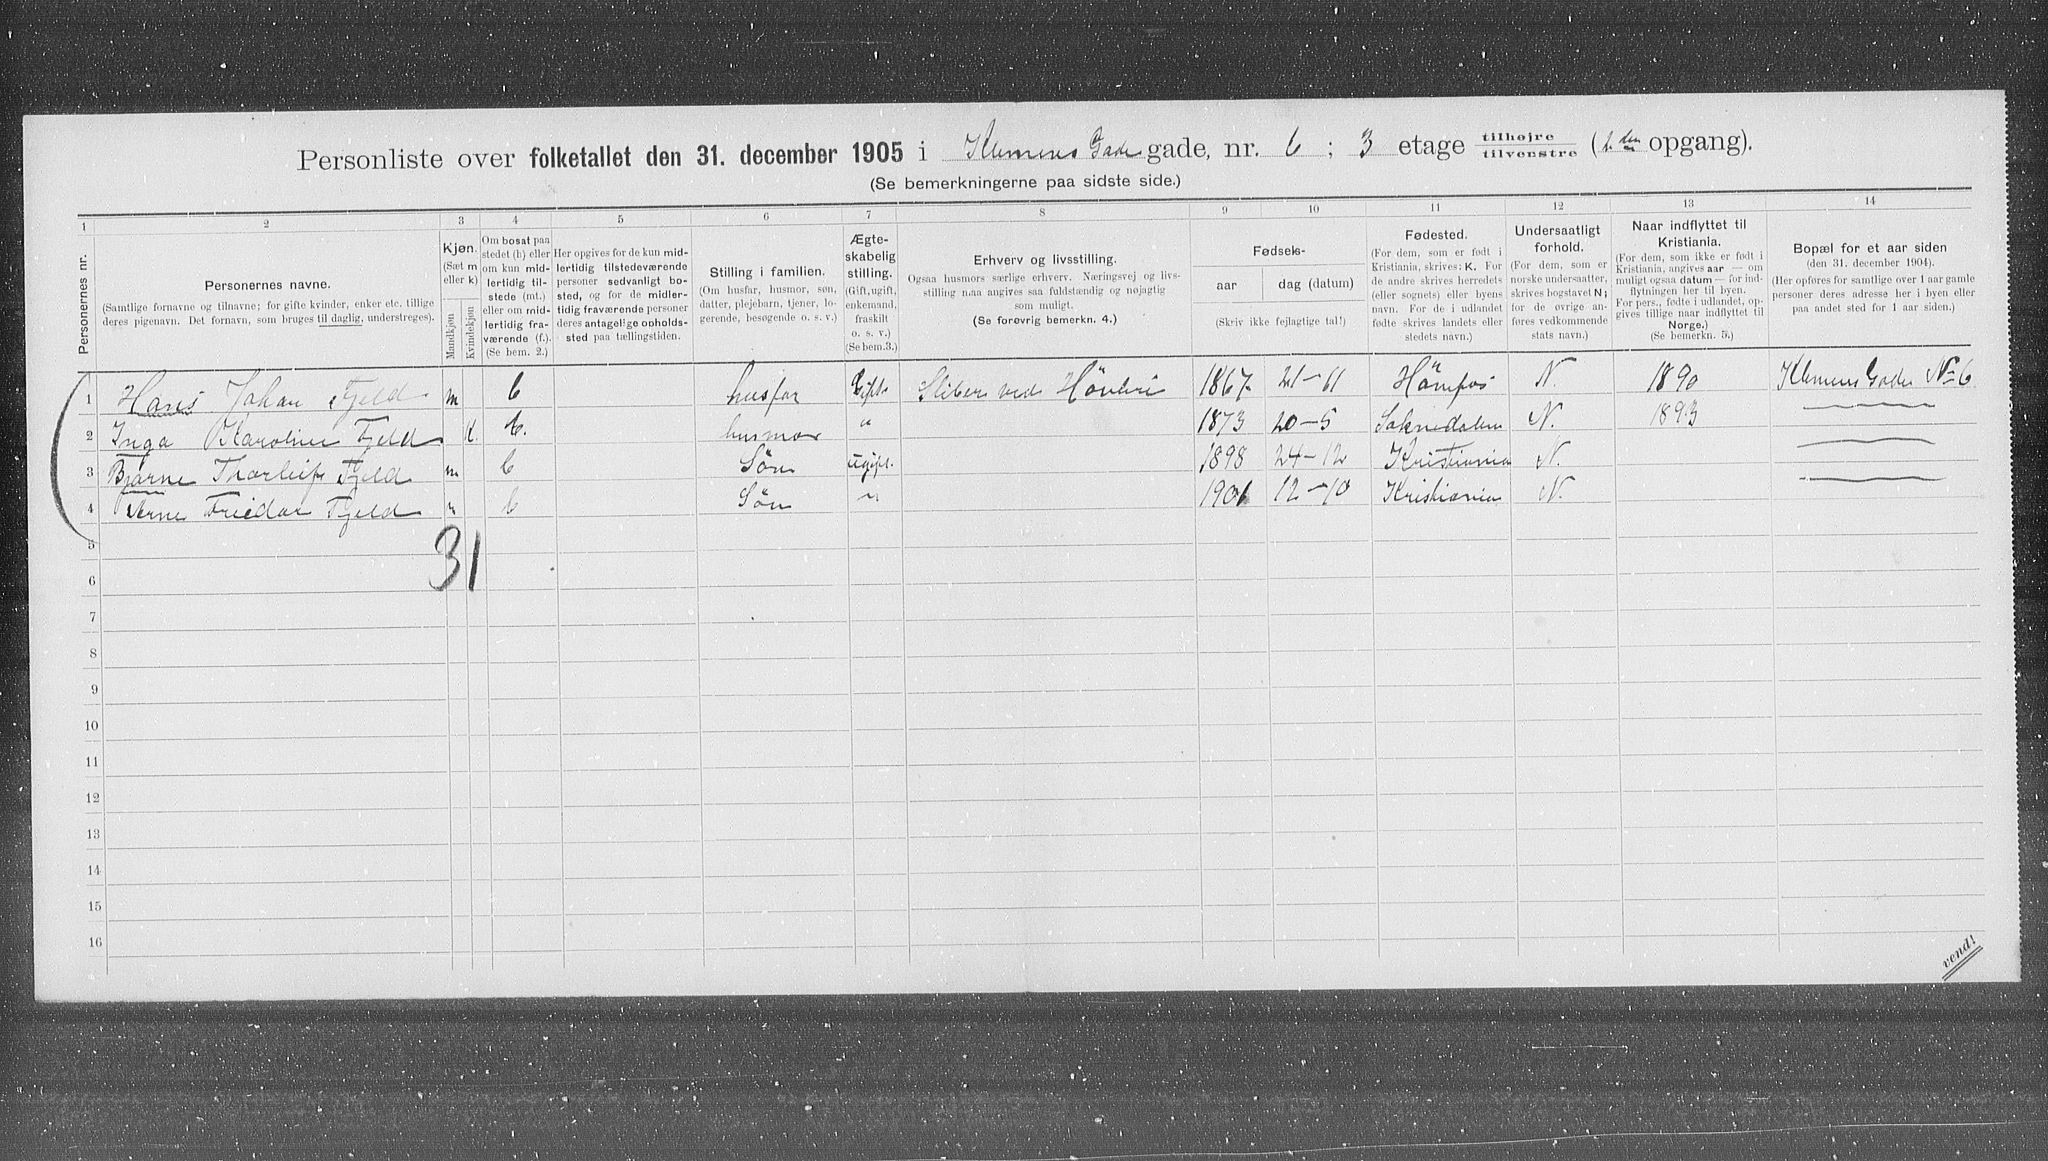 Personliste over folketallet den 31. december 1905 i Klemens Gade gade, nr. 6 ; 3 etage tilhøjre tilvenstre (2 den opgang).
(Se bemerkningerne paa sidste side.)
1 2 3 4 5 6 7 8 9 10 11 12 13 14
Personernes nr.
Personernes navne.
(Samtlige fornavne og tilnavne; for gifte kvinder, enker etc. tillige
deres pigenavn. Det fornavn, som bruges til daglig, understreges).
Kjøn.
(Sæt m
eller k)
Mandkjøn
Kvindekjøn
Om bosat paa
stedet (b) eller
om kun mid-
lertidig til-
stede (mt.)
eller om mid-
lertidig fra-
værende (f.).
(Se bem. 2.)
Her opgives for de kun mid-
lertidig tilstedeværende
personer sedvanlig bo-
sted, og for de midler-
tidig fraværende personer
deres antagelige opholds-
sted paa tællingstiden.
Stilling i familien.
(Om husfar, husmor, søn,
datter, plejebarn, tjener, lo-
gerende, besøgende o. s. v.)
Ægte-
skabelig
stilling.
(Gift, ugift,
enkemand,
fraskilt
o. s. v.)
(Se bem.3.)
Erhverv og livsstilling.
Ogsaa husmors særlige erhverv. Næringsvej og livs-
stilling maa angives saa fuldstændig og nøjagtig
som muligt.
(Se forøvrig bemerkn. 4.)
Fødsels-
aar dag (datum)
(Skriv ikke fejlagtige tal!)
Fødested.
(For dem, som er født i
Kristiania, skrives: K. For
de andre skrives herredets
(eller sognets) eller byens
navn. For de i udlandet
fødte skrives landets eller
stedets navn.)
Undersaatligt
forhold.
(For dem, som er
norske undersaatter,
skrives bogstavet N;
for de øvrige an-
føres vedkommende
stats navn.)
Naar indflyttet til
Kristiania.
(For dem, som ikke er født i
Kristiania, angives aar — om
muligt ogsaa datum — for ind-
flytningen her til byen.
For pers., fødte i udlandet, op-
gives tillige naar indflyttet til
Norge.)
(Se bemerkn. 5.)
Bopæl for et aar siden
(den 31. december 1904).
(Her opføres for samtlige over 1 aar gamle
personer deres adresse her i byen eller
paa andet sted for 1 aar siden.)
1 Hans Johan Fjeld m b husfar Gift Sliber ved Hövleri 1867 21-11 Hönefos N. 1890 Klemens Gade No 6
2 Inga Karoline Fjeld k. b. husmor " 1873 20-5 Soknedalen N. 1893
3 Bjarne Thorleif Fjeld m b Sön ugift. 1898 24-12 Kristiania N.
4 Arne Friedar Fjeld m b Sön " 1901 12-10 Kristiania N.
31
5
6
7
8
9
10
11
12
13
14
15
16
vend!